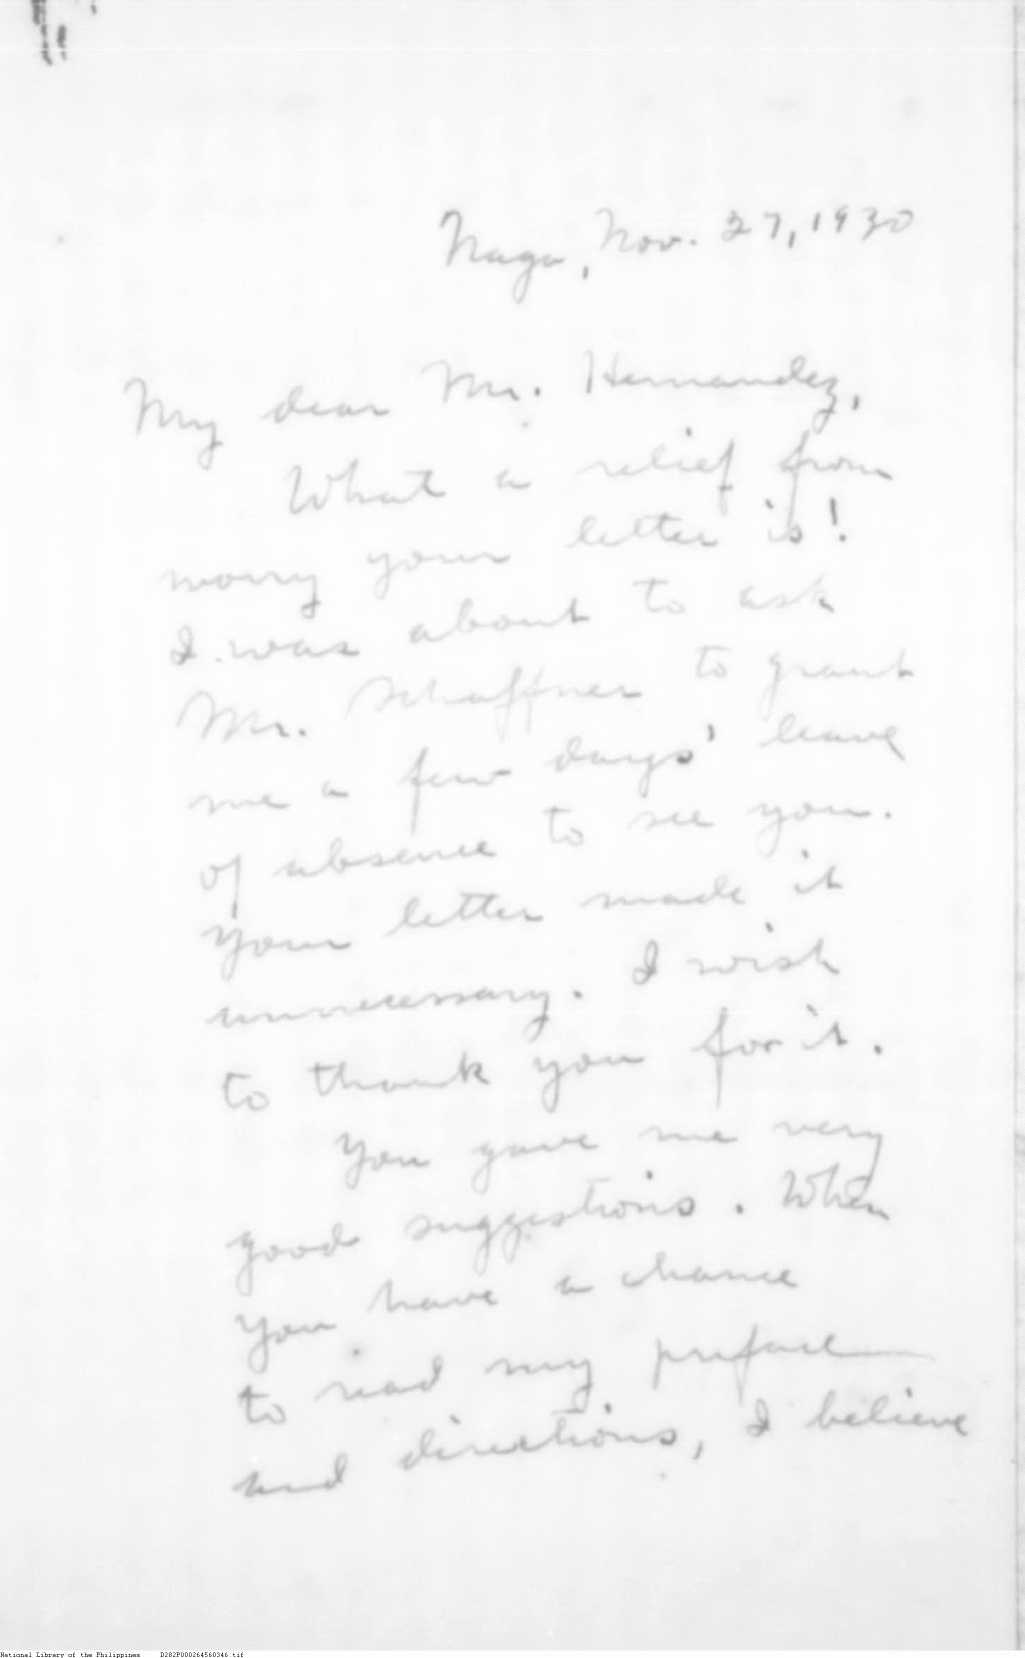 Naga, Nov. 27, 1930
My dear Mr. Hernandez,
What a relief from
worry your letter is!
I was about to ask
Mr. Schaffner to grant
me a few days' leave
of absence to see you.
Your letter made it
unnecessary. I wish
to thank you for it.
You gave me very
good suggestions. When
you have a chance
to read my preface
and directions, I believe
National Library of the Philippines D282P000264560346.tif